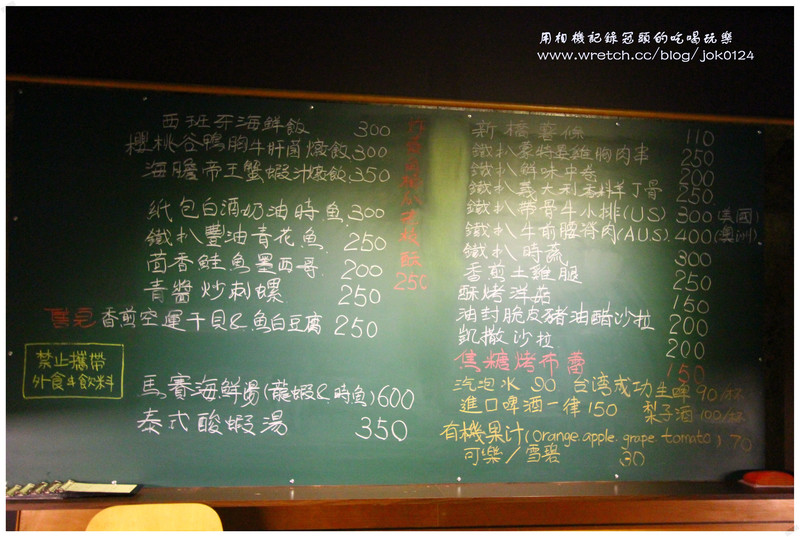 用相機記錄冠頭的吃喝玩樂
www.wretch.cc/blog/jok0124
西班牙海鮮飯 300
櫻桃谷鴨胸牛肝菌燉飯 300
海膽帝王蟹蝦汁燉飯 350
紙包白酒奶油時魚 300
鐵扒豐油青花魚 250
茴香鮭魚墨西哥 200
青醬炒刺螺 250
香煎空運干貝&魚白豆腐 250
禁止攜帶
外食&飲料
馬賽海鮮湯(龍蝦&時魚) 600
泰式酸蝦湯 350
酥
250
新橋薯條 110
鐵扒 維胸肉串 250
鐵扒鮮味中卷 200
鐵扒義大利 羊丁骨 250
鐵扒帶骨牛小排(US) 300 (美國)
鐵扒牛前腰脊肉(AUS) 400 (澳洲)
鐵扒時蔬 300
香煎土雞腿 250
酥烤洋菇 150
油封脆皮豬油醋沙拉 200
凱撒沙拉 200
焦糖烤布蕾 150
汽泡水 90 台湾成功生啤 90/杯
進口啤酒一律 150 梨子酒 100/杯
有機果汁(orange. apple. grape tomato) 70
可樂/雪碧 30